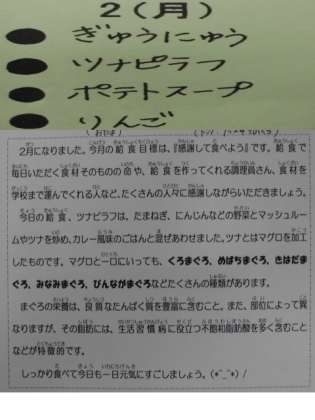 2(月)
ぎゅうにゅう
ツナピラフ
ポテトスープ
りんご
2月になりました。今月の給食目標は、『感謝して食べよう』です。給食で
毎日いただく食材そのものの命や、給食を作ってくれる調理員さん、食材を
学校まで運んでくれる人など、たくさんの人々に感謝しながらいただきましょう。
今日の給食、ツナピラフは、たまねぎ、にんじんなどの野菜とマッシュルー
ムやツナを炒め、カレー風味のごはんと混ぜあわせました。ツナとはマグロを加工
したものです。マグロと一口にいっても、くろまぐろ、めばちまぐろ、きはだま
ぐろ、みなみまぐろ、びんながまぐろなどたくさんの種類があります。
まぐろの栄養は、良質なたんぱく質を豊富に含むこと。また、部位によって異
なりますが、その脂肪には、生活習慣病に役立つ不飽和脂肪酸を多く含むこと
などが特徴的です。
しっかり食べて今日も一日元気にすごしましょう。(*^_^*)/